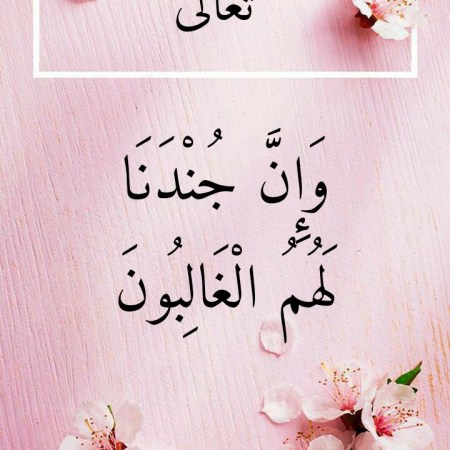 تعالى
وَإِنَّ جُنْدَنَا
لَهُمُ الْغَالِبُونَ